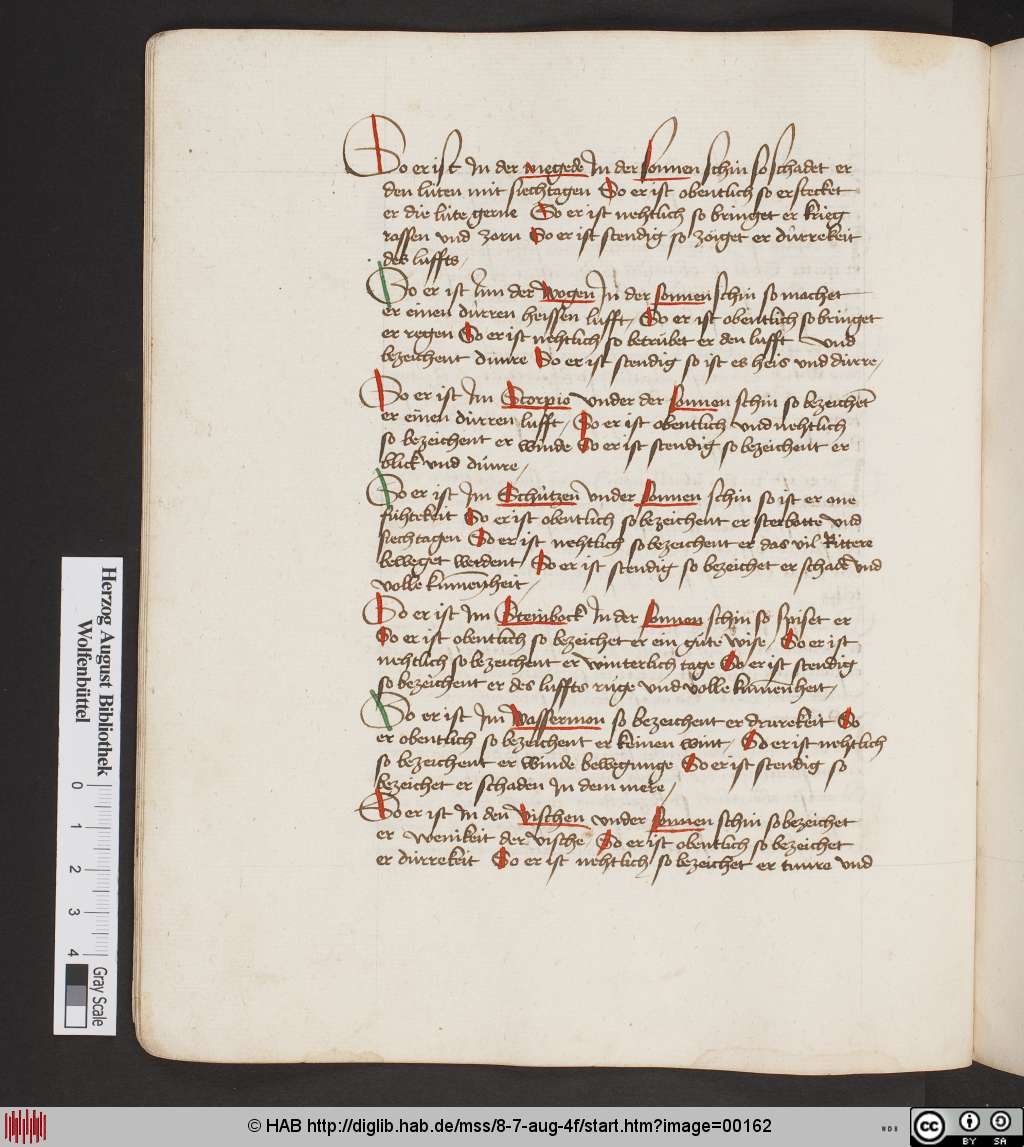 So er ist In der megede In der sonnen schin so schadet er
den lúten mit siechtagen So er ist obentlich so erstecket
er die lúte gerne So er ist nehtlich so bringet er krieg
rassen und zorn So er ist stendig so zöiget er dúrrekeit
des luffts
So er ist Inn der wogen In der sonnen schin so machet
er einen dúrren heissen lufft So er ist obentlich so bringet
er regen So er ist nehtlich so betrúbet er den lufft und
bezeichent dúnre So er ist stendig so ist es heis und dúrre
So er ist Im Scorpio under der sonnen schin so bezeichet
er einen dúrren lufft So er ist obentlich und nehtlich
so bezeichent er winde So er ist stendig so bezeichent er
blick und dúnre
So er ist Im Schútzen under sonnen schin so ist er one
fúhtekeit So er ist obentlich so bezeichent er sterbotte und
siechtagen So er ist nehtlich so bezeichent er das vil Rittere
beweget werdent So er ist stendig so bezeichet er schad und
volle kumenheit
So er ist Im Steinbock In der sonnen schin so spiset er
So er ist obentlich so bezeichet er ein gúte wise So er ist
nehtlich so bezeichent er winterlich tage So er ist stendig
so bezeichent er des luffts rúge und volle kumenheit
So er ist Im wasserman so bezeichent er drurekeit So
er obentlich so bezeichent er keinen wint So er ist nehtlich
so bezeichent er winde bewegunge So er ist stendig so
bezeichet er schaden In dem mere
So er ist In den vischen under sonnen schin so bezeichet
er wenikeit der vische So er ist obentlich so bezeichet
er dúrrekeit So er ist nehtlich so bezeichet er tunre und
Herzog August Bibliothek
Wolfenbüttel
0 1 2 3 4
Gray Scale
© HAB http://diglib.hab.de/mss/8-7-aug-4f/start.htm?image=00162
WDB
cc BY SA